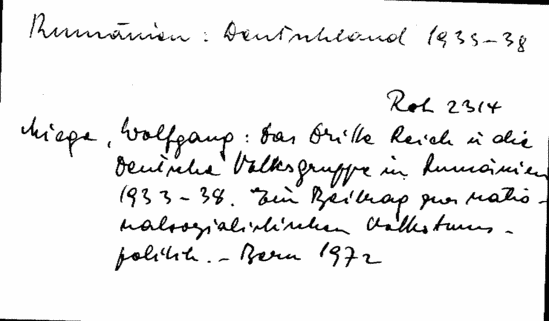 Rumänien: Deutschland 1933-38
Roh 2314
Miege, Wolfgang: Das Dritte Reich u die
Deutsche Volksgruppe in Rumänien
1933-38. Ein Beitrag zur natio-
nalsozialistischen Volkstums-
politik. - Bern 1972